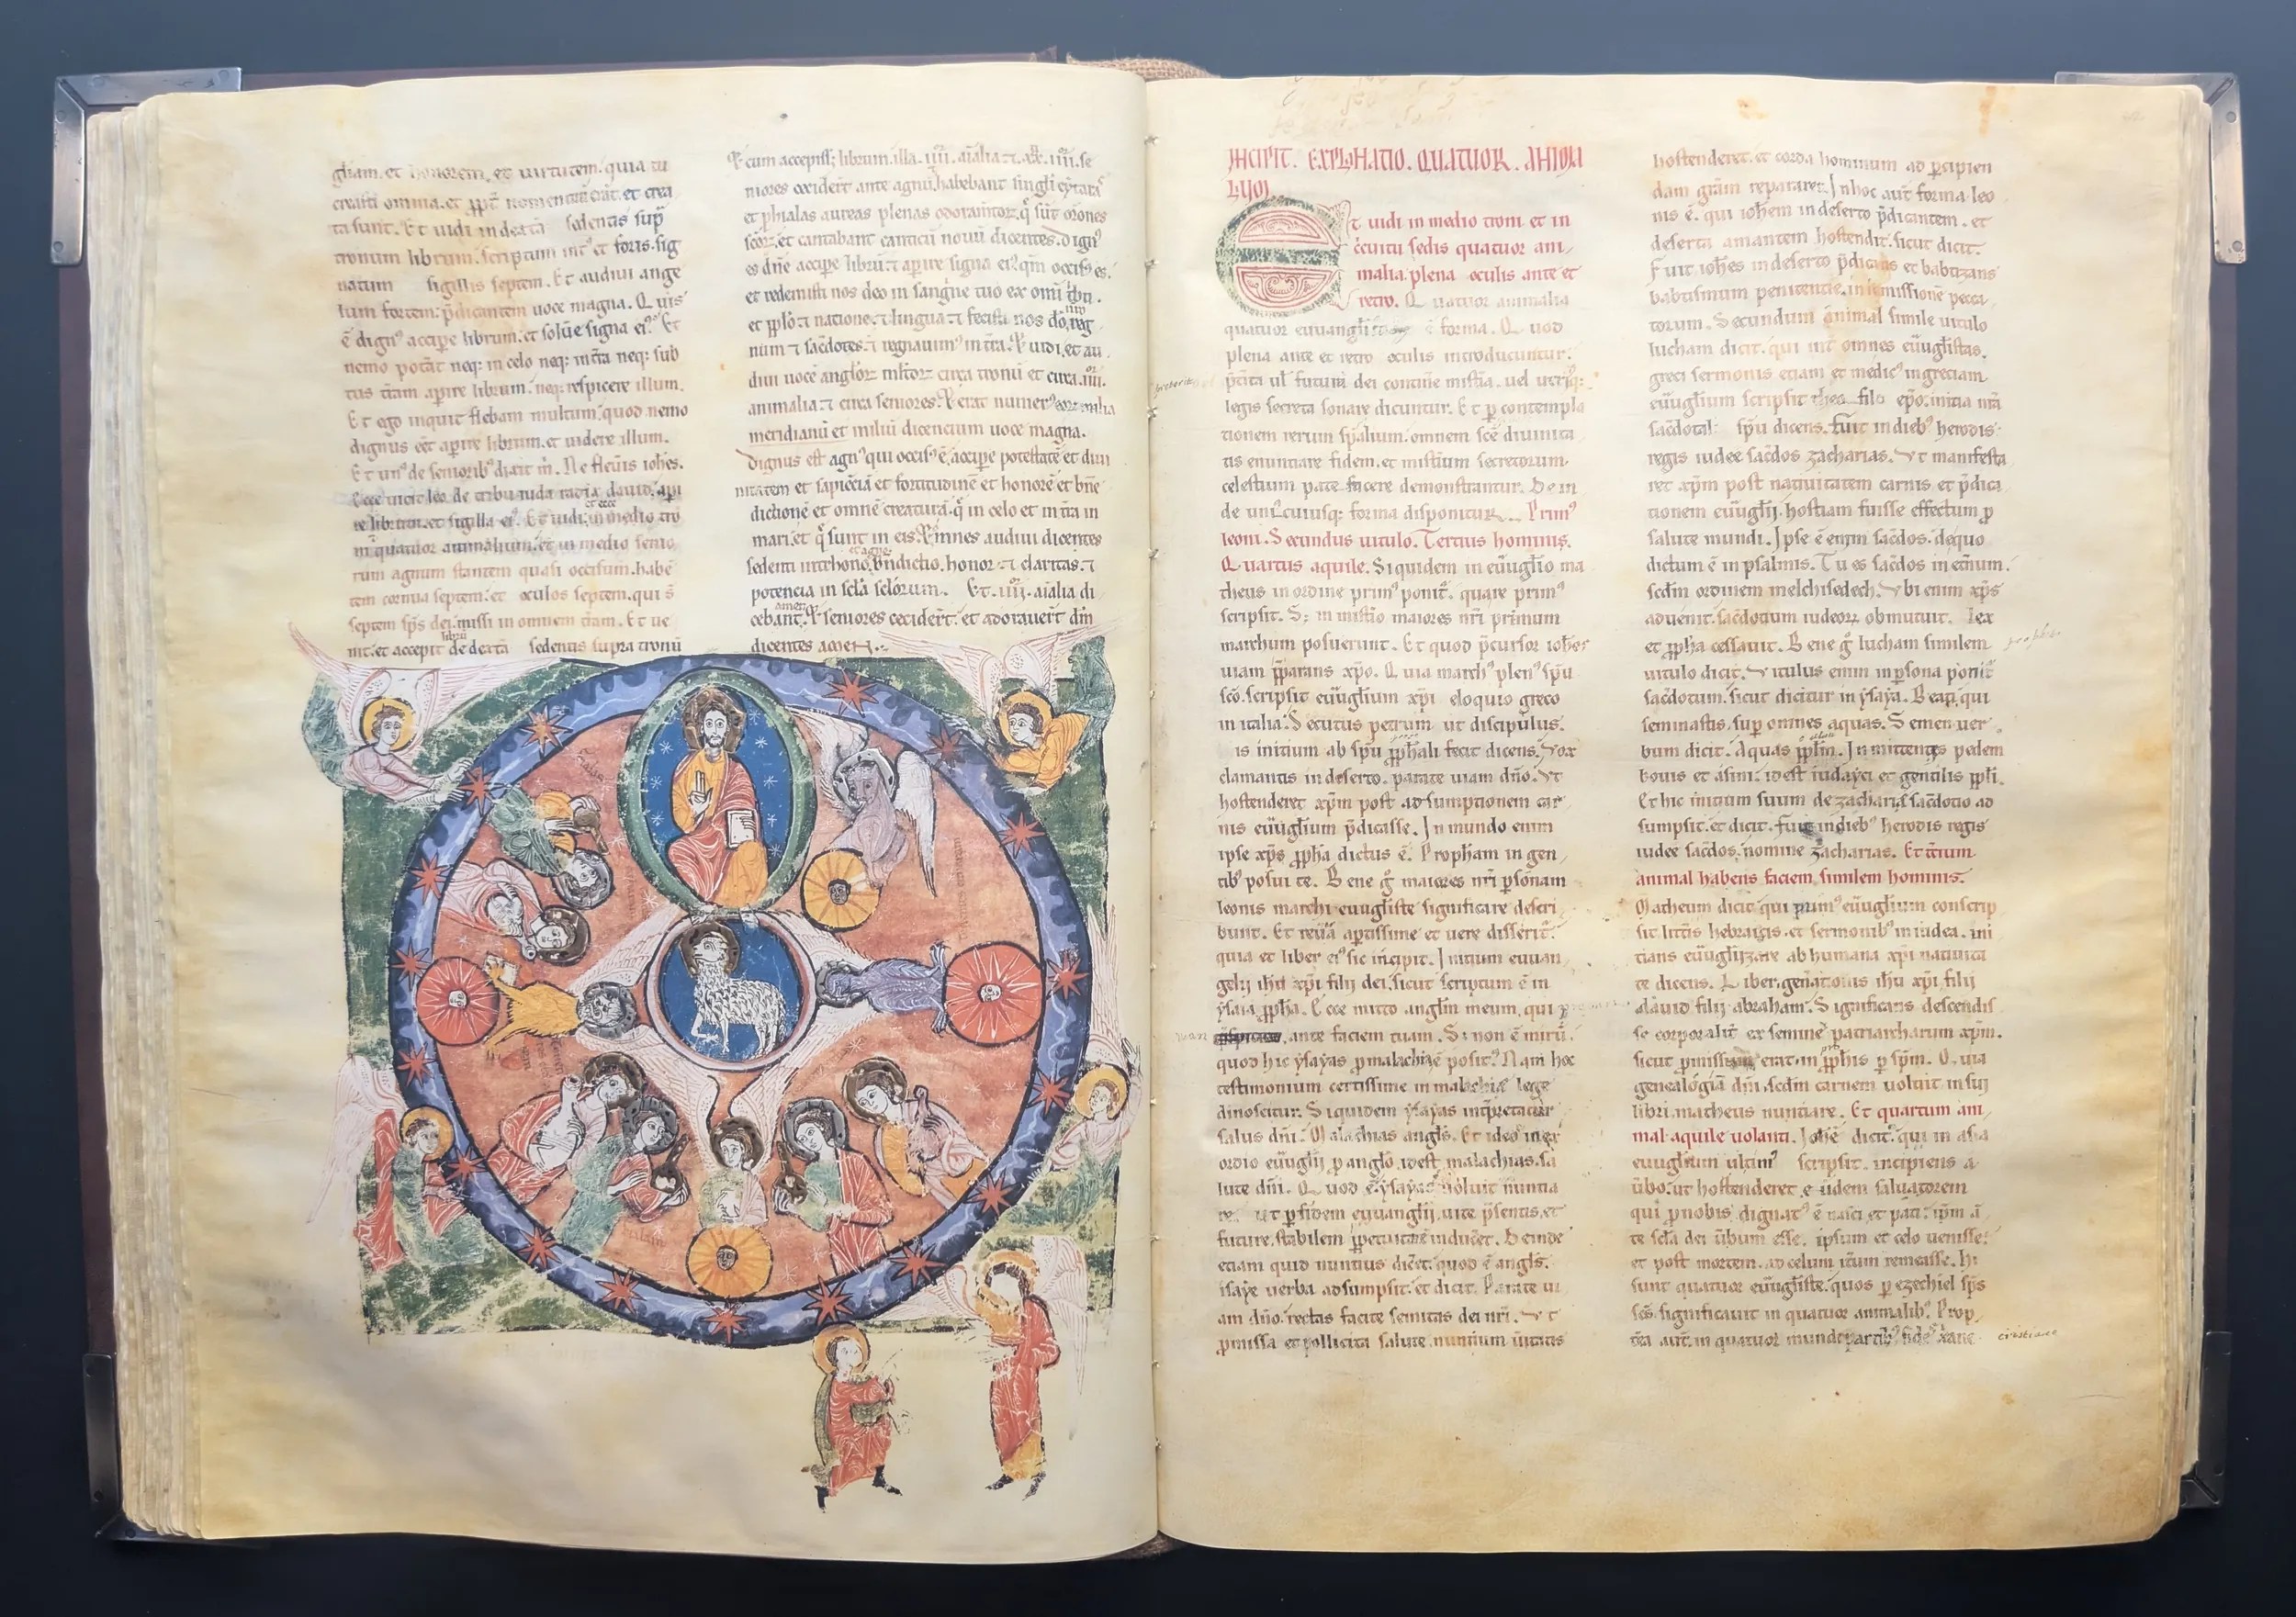 głiam. et honorem. et uirtutem. quia tu
creasti omnia. et ꝓpt̄ nomen tuū erāt. et crea
ta sunt. Et uidi in dextā sedentis sup̄
tronum librum. scriptum intꝰ et foris. sig
natum sigillis septem. Et audiui ange
lum fortem. p̄dicantem uoce magna. Quis
ē dignꝰ accipe librum. et solūe signa eiꝰ. Et
nemo potāt neq: in celo neq: in tr̄a neq: sub
tus tr̄am. apire librum. neq: respicere illum.
Et ego inquit flebam multum. quod nemo
dignus eēt apire librum. et uidere illum.
Et unꝰ de seniorib; dixit m̄. Ne fleūis iohes.
Ecce uicit leo de tribu iuda radix dauid. api
et ecce
re librum. et sigilla eiꝰ. Et uidi. in medio tro
ni quatuor animalium. et in medio senio
rum agnum stantem quasi occisum. habē
tem cornua septem. et oculos septem. qui s̄
septem sp̄s dei. missi in omnem tr̄am. Et ue
librū
nit. et accepit de dextā sedentis supra tronū
Et cum accepiss; librum. illa. iiii. aīalia. ⁊. xx. iiii. se
niores cecider̄t ante agnū. habebant singli cytarā
et phialas aureas plenas odoramtoꝝ. q̄ sūt orōnes
sc̄oꝝ. et cantabant canticū nouū dicentes. dignꝰ
es dn̄e accipe librū. ⁊ apire signa eiꝰ. qm̄ occisꝰ es.
et redemisti nos deo in sangne tuo ex om̄i tbu.
et pplo. ⁊ natione. ⁊ lingua. ⁊ fecisti nos dō. reg
num ⁊ sac̄dotes. ⁊ regnauimꝰ in tr̄a. Et uidi. et au
diui uocē angloꝝ mltoꝝ circa tronū et circa. iiii.
animalia. ⁊ circa seniores. Et erat numerꝰ eoꝝ milia
meridianū et miliū dicencium uoce magna.
Dignus est agnꝰ qui occisꝰ ē. accipe potestatē et diui
nitatem et sapicciā et fortitudinē et honorē et bn̄e
dictionē et omnē creaturā. q̄ in celo et in tr̄a in
mari. et q̄ sunt in eis. Omnes audiui dicentes
et agno
sedenti in throno. bn̄dictio. honor. ⁊ claritas. ⁊
potencia in scl̄a scl̄orum. Et. iiii. aīalia di
cebant. amen. Et seniores cecider̄t. et adorauer̄t dm̄
dicentes amen.
INCIPIT. EXPLANATIO. QUATUOR. ANIMA
LIUM
Et uidi in medio troni et in
circuitu sedis quatuor ani
malia. plena oculis ante et
retro. Quatuor animalia
quatuor euuanglistaꝝ ē forma. Quod
plena ante et retro oculis introducuntur.
p̄t̄ita ul̄ futura dei contine mist̄ia. uel utriq:
legis secreta sonare dicuntur. Et p contempla
tionem rerum sp̄alium. omnem sc̄e diuinita
tis enuntiare fidem. et mist̄ium secretorum
celestium pate facere demonstrantur. De in
de uniꝰcuiusq: forma disponitur. Primꝰ
leoni. Secundus uitulo. Tertius hominis.
Quartus aquile. Siquidem in eūuglio ma
theus in ordine primꝰ ponit̄. quare primꝰ
scripsit. S; in mist̄io maiores nr̄i primum
marchum posuerunt. Et quod p̄cursor iohes
uiam p̄parans xp̄o. Quia marchꝰ plenꝰ sp̄u
sc̄o. scripsit eūuglium xp̄i eloquio greco
in italia. Secutus petrum ut discipulus.
is initium ab sp̄u ꝓphali fecit dicens. Vox
clamantis in deserto. parate uiam dn̄o. Vt
hostenderet xp̄m post adsumptionem car
nis eūuglium p̄dicasse. In mundo enim
ipse xp̄s ꝓpha dictus ē. Propham in gen
tibꝰ posui te. Bene g̊ maiores nr̄i psōnam
leonis marchi euugliste significare descri
bunt. Et rei uā aptissime et uere disserit.
quia et liber eiꝰ sic incipit. Initium euuan
gelij ihū xp̄i filij dei. sicut scriptum ē in
ysaia ꝓpha. Ecce mitto anglm meum. qui p
ante faciem tuam. S; non ē mirū.
quod hic ysayas p malachiē posit̄. Nam hoc
testimonium certissime in malachia lege
dinoscitur. Siquidem ysayas int̄pretatur
salus dn̄i. Malachias angls̄. Et ideo in ex
ordio eūuglij p anglo. idest malachias. sa
lute dn̄i. Quod ē ysayas uoluit nuntia
re. ut p fidem euuanglij. uite p̄sentis. et
future. stabilem ꝑpetuitatē induc̄et. Deinde
etiam quid nuntius dic̄et. quod ē angls̄.
isaye uerba adsumpsit. et dicit. Parate ui
am dn̄o. rectas facite semitas dei nr̄i. Vt
p̄missa et pollicita salute. nuntium ūitatis
hostenderet. et corda hominum ad pcipien
dam grām repararet. In hoc aut̄ forma leo
nis ē. qui iohem in deserto p̄dicantem. et
deserta amantem hostendit. sicut dicit.
Fuit iohes in deserto p̄dicans et babtizans
babtismum penitentie. in remissionē pecca
torum. Secundum animal simile uitulo
lucham dicit. qui int̄ omnes eūuglistas.
greci sermonis etiam et medicꝰ in greciam
eūuglium scripsit theofilo ep̄o. initia nr̄a
sac̄dotali sp̄u dicens. Fuit in diebꝰ herodis
regis iudee sac̄dos zacharias. Vt manifesta
ret xp̄m post natiuitatem carnis et p̄dica
tionem eūuglij. hostiam fuisse effectum p
salute mundi. Ipse ē enim sac̄dos. de quo
dictum ē in psalmis. Tu es sac̄dos in et̄num.
scdm ordinem melchisedech. Vbi enim xp̄s
aduenit. sac̄dotium iudeoꝝ obmutuit. lex
et ꝓpha cessauit. Bene g̊ lucham similem
uitulo dicit. Vitulus enim in psona ponit̄
sac̄dotum. sicut dicitur in ysaya. Beati qui
seminastis. sup omnes aquas. Semen uer
bum dicit. Aquas pplm̄. Inmittentes pedem
bouis et asini. idest iudayci et gentilis ppli.
Et hic initium suum de zacharia sac̄dotio ad
sumpsit. et dicit. Fuit in diebꝰ herodis regis
iudee sac̄dos nomine zacharias. Et tc̄ium
animal habens faciem similem hominis.
Matheum dicit qui primꝰ eūuglium conscrip
sit litt̄is hebraicis. et sermonibꝰ in iudea. ini
tians eūuglizare ab humana xp̄i natiuita
te dicens. Liber gen̄ationis ihū xp̄i filij
dauid filij abraham. Significans descendis
se corporalit̄ ex semine patriarcharum xp̄m.
sicut p̄missum erat in ꝓphis p sp̄m. Quia
genealogiā dn̄i. scdm carnem uoluit in sui
libri. matheus nuntiare. Et quartum ani
mal aquile uolanti. Iohē dicit. qui in asia
euuglium ultimꝰ scripsit. incipiens a
ūbo. ut hostenderet eūdem saluatorem
qui p nobis dignatꝰ ē nasci et pati. ip̄m ā
te scl̄a dei ūbum esse. ipsum et celo uenisse.
et post mortem. ad celum it̄um remeasse. Hi
sunt quatuor eūugliste. quos p ezechiel sp̄s
sc̄s. significauit in quatuor animalibꝰ. Prop
t̄ea aut̄. in quatuor mundi partibꝰ fidei xane
cristiane